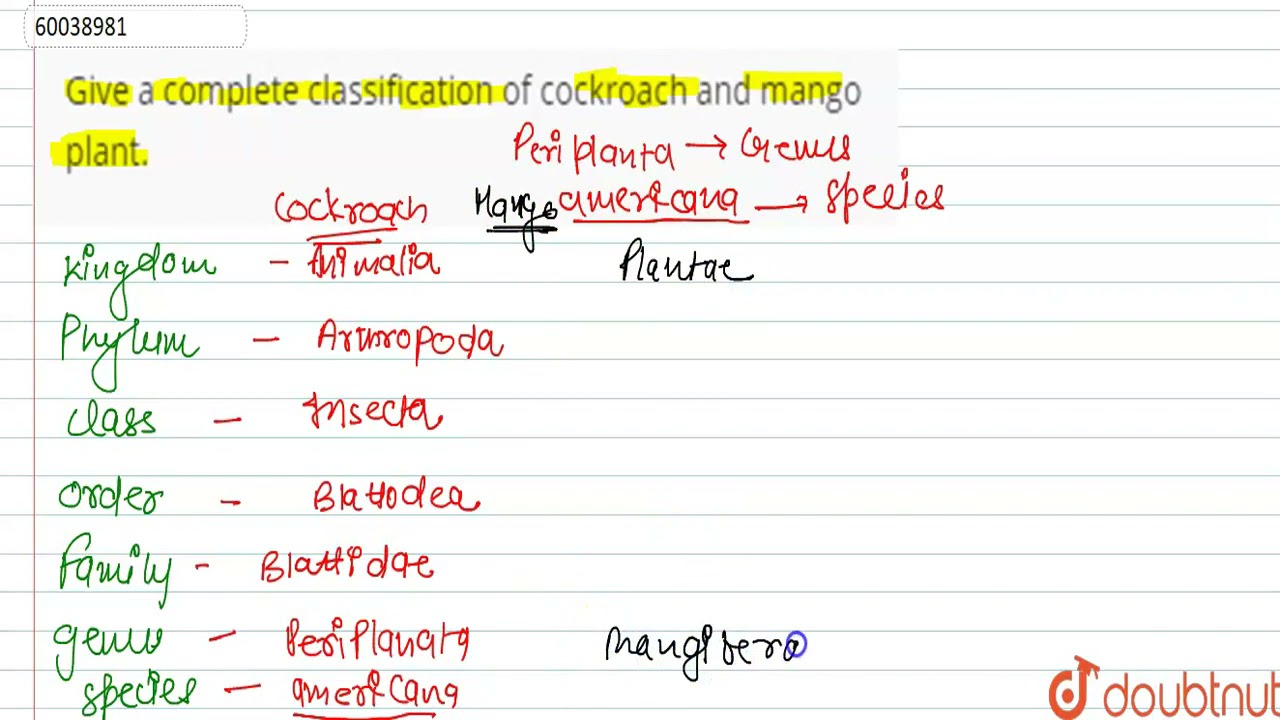 60038981
Give a complete classification of cockroach and mango
plant.
Periplanta → Genus
Cockroach Mango americana → species
Kingdom - Animalia Plantae
Phylum - Arthropoda
Class - Insecta
Order - Blattodea
Family - Blattidae
genus - Periplanata Mangifera
species - americana
doubtnut